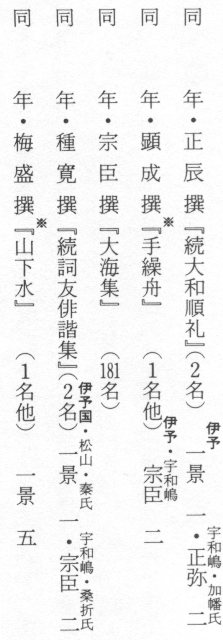 同　年・正辰撰『続大和順礼』（2名）伊予一景　一・宇和嶋・加幡氏正弥　二
同　年・顕成撰※『手繰舟』（1名他）伊予・宇和嶋宗臣　二
同　年・宗臣撰『大海集』（181名）
同　年・種寛撰『続詞友俳諧集』（2名）伊予国・松山・秦氏一景　一・宇和嶋・桑折氏宗臣　二
同　年・梅盛撰※『山下水』（1名他）　一景　五